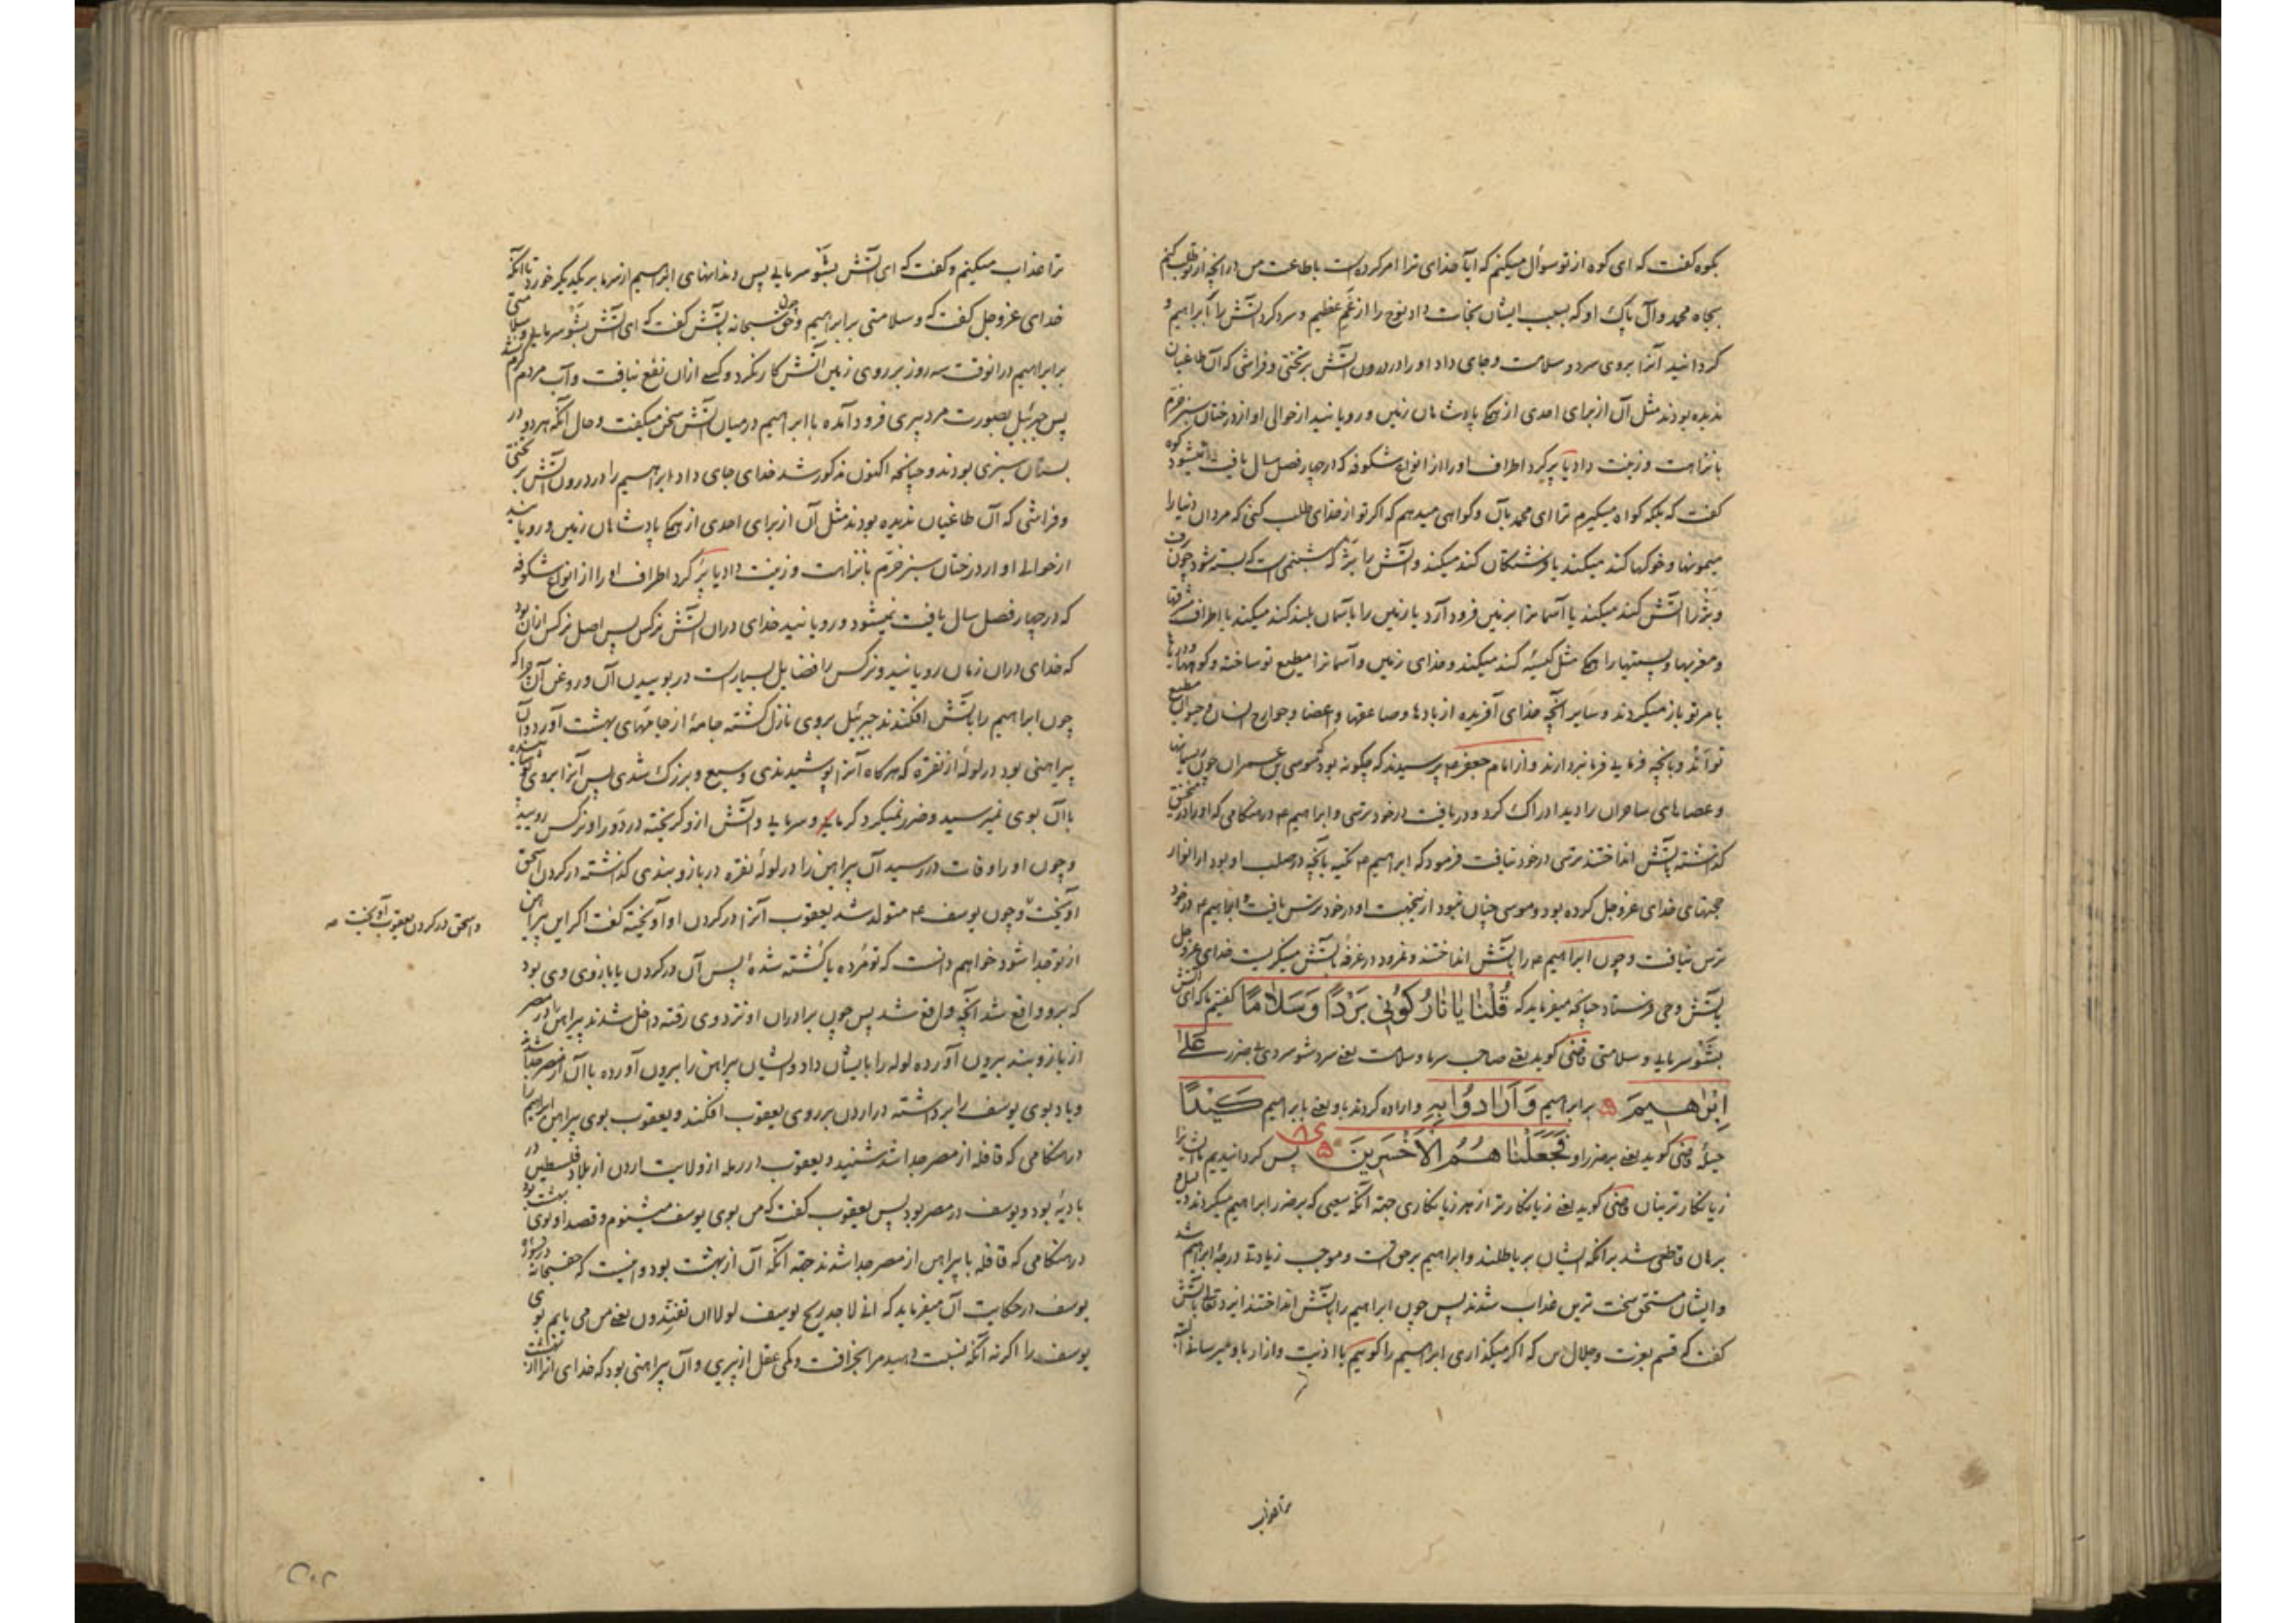 بکوه گفت که ای کوه از تو سؤال میکنم که ایا خدای ترا امر کرده است باطاعت من در انچه از تو طلب کنم
بجاه محمد وآل پاک او که بسبب ایشان نجات داد نوح را از غم عظیم و سرد کرد آتش را بر ابراهیم و
کردانید آنرا بروی سرد و سلامت و جای داد او را در درون آتش بر تختی و فراشی که آن طاغیان
ندیده بودند مثل آن از برای احدی از همه پادشاهان زمین و رویانید از حوالی او از درختان سبز خرم
با نزاهت و زینت داد یا پر کرد اطراف او را از انواع شکوفه که در چهار فصل سال یافت نمیشود کوه
گفت که بلکه کواه میکیرم ترا ای محمد بآن و کواهی میدهم که اکر تو از خدای طلب کنی که مردان دنیا را
میمونها و خوکها کند میکند یا فرشتکان کند میکند و آتش را یژ که شبنمی است که بسته شود چون برف
و یژ را آتش کند میکند یا آسمانرا بزمین فرود آرد یا زمین را بآسمان بلند کند میکند یا اطراف مشرقها
و مغربها و پستیها را همه مثل کیسهٔ کند میکند و خدای زمین و آسمانرا مطیع تو ساخته و کوهها و دریاها
بامر تو باز میکردند و سایر آنچه خدای آفریده از بادها و صاعقها و اعضا و جوارح انسان و حیوان مطیع
تو اند و بانچه فرمایی فرمانبردارند و از امام جعفر ع پرسیدند که چکونه بود که موسی بن عمران چون ریسمانها
و عصاهای ساحران را دید ادراک کرد و دریافت در خود ترسی و ابراهیم ع در هنکامی که او را در منجنیق
کذاشته بآتش انداختند ترسی در خود نیافت فرمود که ابراهیم ع تکیه بآنچه در صلب او بود از انوار
حجتهای خدای عزوجل کرده بود و موسی چنان نبود از ینجهت او در خود ترس یافت و ابراهیم ع در خود
ترس نیافت و چون ابراهیم ع را بآتش انداختند و نمرود در غرفهٔ بآتش میکریست خدای عزوجل
بآتش وحی فرستاد چنانچه میفرماید که قُلْنَا یَا نَارُ کُونِی بَرْدًا وَسَلَامًا گفتیم ما که ای آتش
بشو سرمایی و سلامتی قاضی کوید یعنی صاحب سرما و سلامت یعنی سرد شو سردی بی ضرر عَلَی
اِبْرَاهِیمَ بر ابراهیم وَاَرَادُوا بِهِ و اراده کردند باو یعنی بابراهیم کَیْدًا
حیلهٔ قاضی کوید یعنی بر ضرر او فَجَعَلْنَا هُمُ الْاَخْسَرِینَ پس کردانیدیم ما ایشانرا
زیانکارترینان قاضی کوید یعنی زیانکارتر از هر زیانکاری جهة آنکه سعیی که بر ضرر ابراهیم میکردند دلیل و
برهان قاطعی شد بر انکه ایشان بر باطلند و ابراهیم بر حق است و موجب زیادتی درجهٔ ابراهیم شد
و ایشان مستحق سخت ترین عذاب شدند پس چون ابراهیم را بآتش انداختند ایزد تعالی بآتش
گفت که قسم بعزت و جلال من که اکر میکذاری ابراهیم را کوییم یا اذیت و آزار باو میرسانی
ترا عذاب
ترا عذاب میکنیم و گفت که ای آتش بشو سرمایی پس دندانهای ابراهیم از سرما بر یکدیکر خورد تا آنکه
خدای عزوجل گفت که و سلامتی بر ابراهیم و چون حق سبحانه بآتش گفت که ای آتش بشو سرمایی و سلامتی
بر ابراهیم در انوقت سه روز بر روی زمین آتش کار نکرد و کسی ازان نفع نیافت و آب مردم گرم نشد
پس جبرئیل بصورت مرد پیری فرود آمده با ابراهیم در میان آتش سخن میکفت و حال آنکه هر دو در
بستان سبزی بودند و چنانچه اکنون مذکور شد خدای جای داد ابراهیم را در درون آتش بر تختی
و فراشی که آن طاغیان ندیده بودند مثل آن از برای احدی از همه پادشاهان زمین و رویانید
از حوالی او از درختان سبز خرم با نزاهت و زینت داد یا پر کرد اطراف او را از انواع شکوفه
که در چهار فصل سال یافت نمیشود و رویانید خدای دران آتش نرکس پس اصل نرکس ازان بود
که خدای دران زمان رویانید و نرکس را فضایل بسیارست در بوییدن آن و روغن آن چرا که
چون ابراهیم را بآتش افکندند جبرئیل بروی نازل گشته جامهٔ از جامهای بهشت آورد و آن
پیراهنی بود در لولهٔ از نقره که هرکاه آنرا پوشیدندی وسیع و بزرک شدی پس آنرا بروی پوشانیده
باآن بوی نمیرسید و ضرر نمیکرد کرمایی و سرمایی و آتش ازو کریخته در دور او نرکس رویید
و چون او را وفات در رسید آن پیراهن را در لولهٔ نقره در بازو بندی کذاشته در کردن اسحق
آویخت و چون یوسف ع متولد شد یعقوب آنرا در کردن او آویخته گفت اکر این پیراهن
از تو جدا شود خواهم دانست که تو مرده یا کشته شدهٔ پس آن در کردن یا بازوی وی بود
که برو واقع شد آنچه واقع شد پس چون برادران او نزد وی رفته داخل شدند پیراهن را در مصر
از بازو بند بیرون آورده لوله را بایشان داد و ایشان پیراهن را بیرون آورده باآن از مصر جدا شدند
و باد بوی یوسف را برداشته در اردن بر روی یعقوب افکند و یعقوب بوی پیراهن ابراهیم را
در هنکامی که قافله از مصر جدا شد شنید و یعقوب در رمله از ولایت اردن از بلاد فلسطین در
بادیهٔ بود و یوسف در مصر بود پس یعقوب گفت که من بوی یوسف میشنوم و قصد او بوی بهشت بود
در هنکامی که قافله با پیراهن از مصر جدا شدند جهة آنکه آن از بهشت بود و اینست که حق سبحانه در سوره
یوسف در حکایت آن میفرماید که انی لاجد ریح یوسف لولا ان تفندون یعنی من می یابم بوی
یوسف را اکر نه آنکه نسبت دهید مرا بخرافت و کمی عقل از پیری و آن پیراهنی بود که خدای آنرا از بهشت
و اسحق در کردن یعقوب آویخت